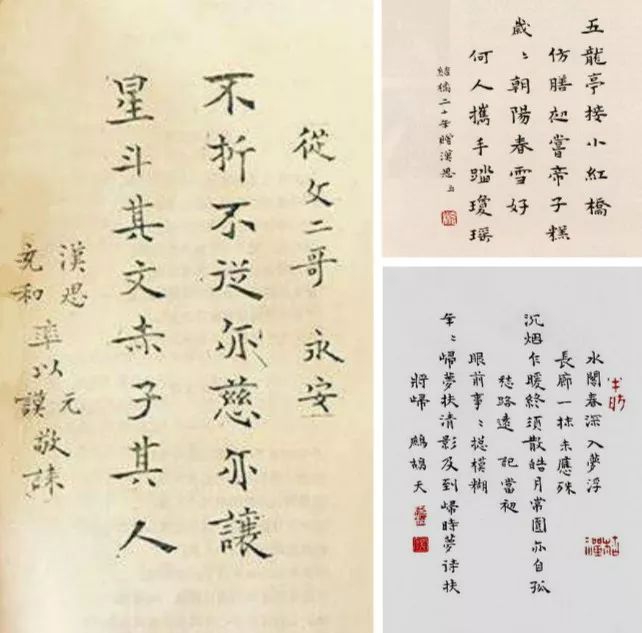 從文二哥 永安
不折不從亦慈亦讓
星斗其文赤子其人
漢思
充和
率以元
以謨
敬誄
五龍亭接小紅橋
仿膳初嘗帝子糕
歲々朝陽春雪好
何人攜手踏瓊瑤
結縭二十年贈漢思
水閣春深入夢浮
長廊一抹未應殊
沉烟乍暖終須散皓月常圓亦自孤
愁路遠 記當初
眼前事々總模糊
年々歸夢扶清影及到歸時夢待扶
將歸 鷓鴣天